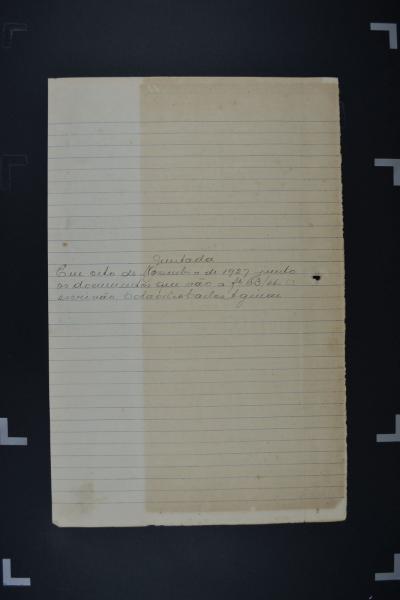 Juntada
Em oito de Novembro de 1927 junto
os documentos que vão a fls 63/66. O
escrivão,